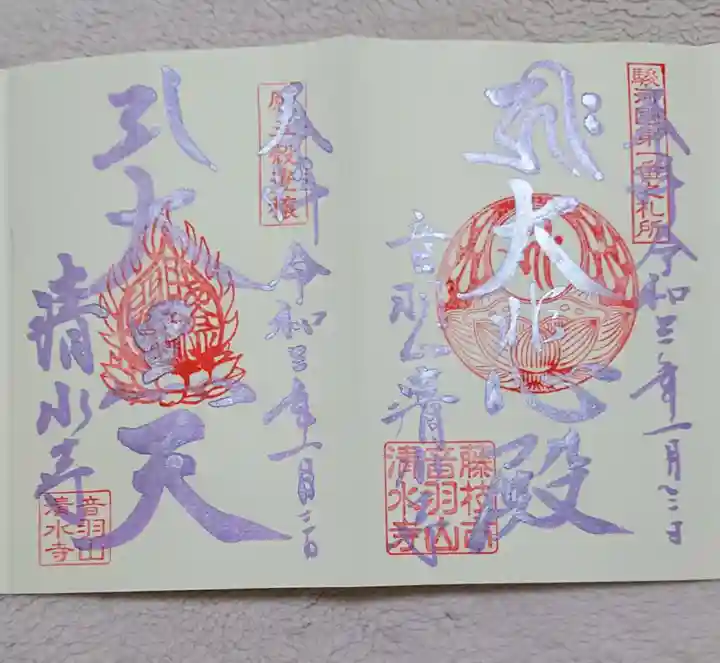 駿河国第一番之札所
奉拝 令和三年一月三日
大悲殿
音羽山 清水寺
藤枝市
音羽山
清水寺
奉拝 令和三年一月三日
天
清水寺
音羽山
清水寺